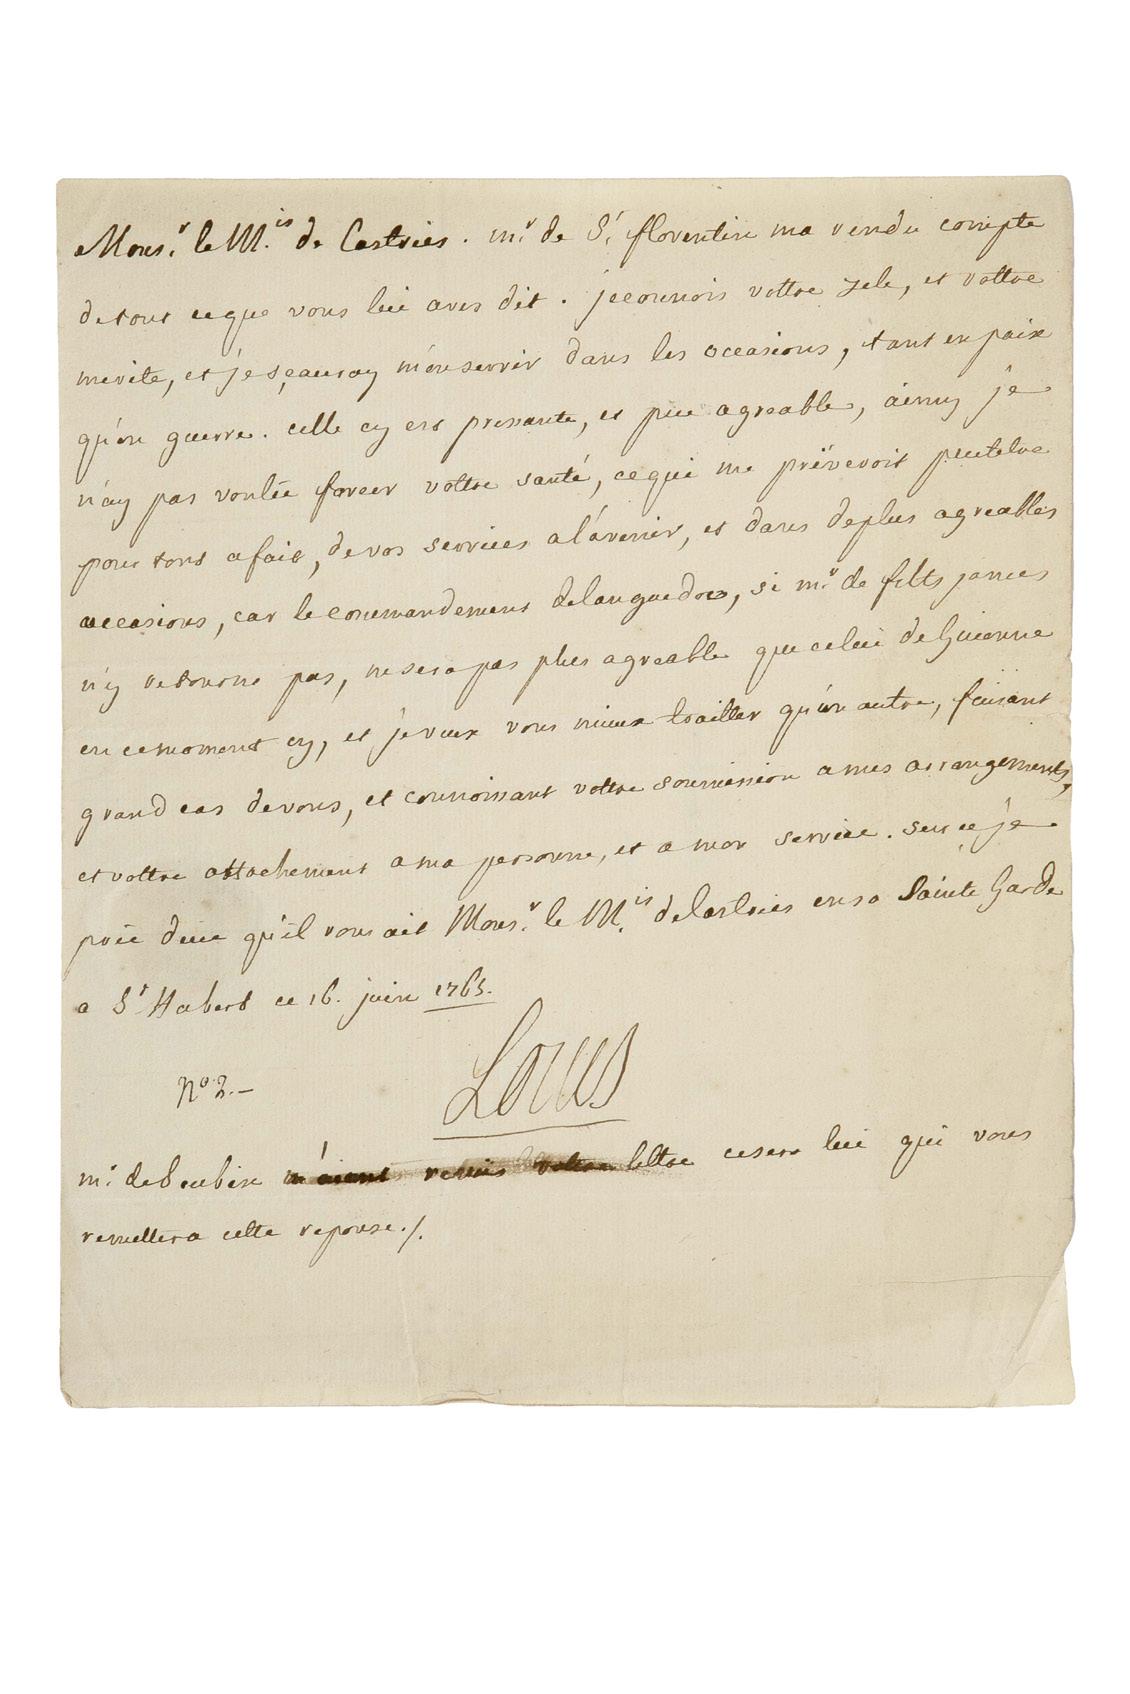 Mons.r le M.is de Castries. m.r de S.t florentin ma rendu compte
de tout ce que vous lui aves dit. je connois vostre zele, et vostre
merite, et je sçauray m'en servir dans les occasions, tant en paix
qu'en guerre. celle cy est pressante, et peu agreable, ainsy je
n'ay pas voulu forcer vostre santé, ce qui me priveroit peutetre
pour tout a fait, de vos services a l'avenir, et dans de plus agreables
occasions, car le commandement de languedoc, si mr. de fitts james
n'y retourne pas, ne sera pas plus agreable que celui de Guienne
en ce moment cy, et je veux vous mieux traitter qu'un autre, faisant
grand cas de vous, et connoissant vostre soumission a mes arrangements,
et vostre attachement a ma personne, et a mon service. sur ce je
prie dieu qu'il vous ait Mons.r le M.is de Castries en sa Sainte Garde
a St Hubert ce 16. juin 1765.
Louis
No. 2.-
mr. de Soubise m'aiant remis vostre lettre ce sera lui qui vous
remettera cette reponse./.